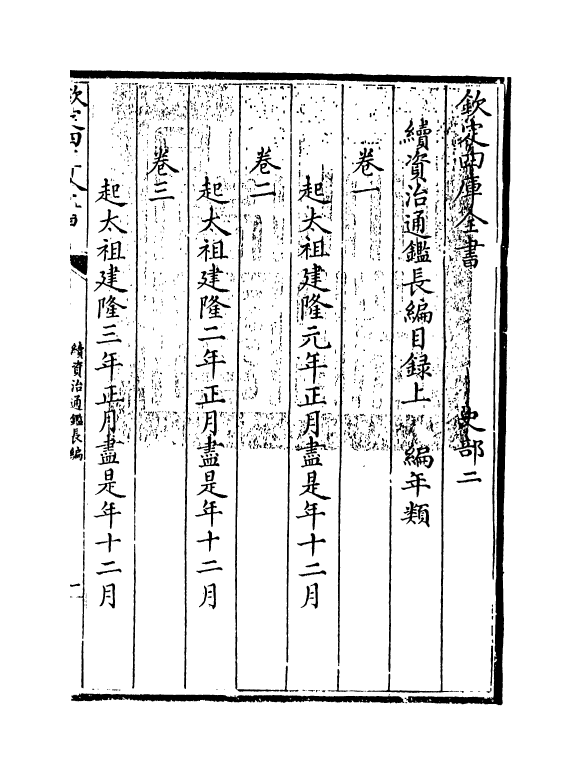 欽定四庫全書　史部二
續資治通鑑長編目録上　編年類
卷一
起太祖建隆元年正月盡是年十二月
卷二
起太祖建隆二年正月盡是年十二月
卷三
起太祖建隆三年正月盡是年十二月
續資治通鑑長編
一